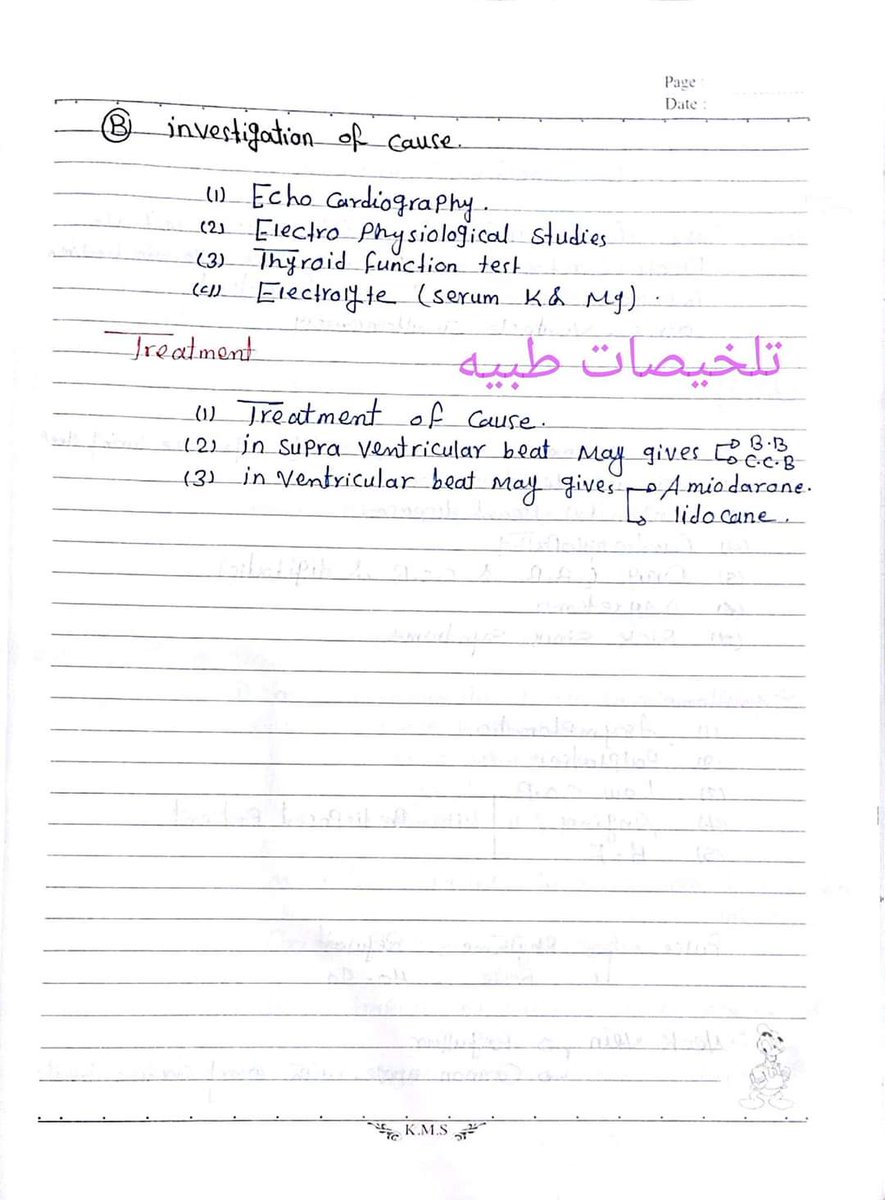 Page :
Date :
Ⓑ investigation of cause.
(1) Echo Cardiography.
(2) Electro Physiological Studies
(3) Thyroid function test
(4) Electrolyte (serum K & Mg).
Treatment
تلخيصات طبيه
(1) Treatment of cause.
(2) in supra ventricular beat May gives → B.B
→ C.C.B
(3) in ventricular beat May gives → Amiodarone.
↳ lidocane.
K.M.S